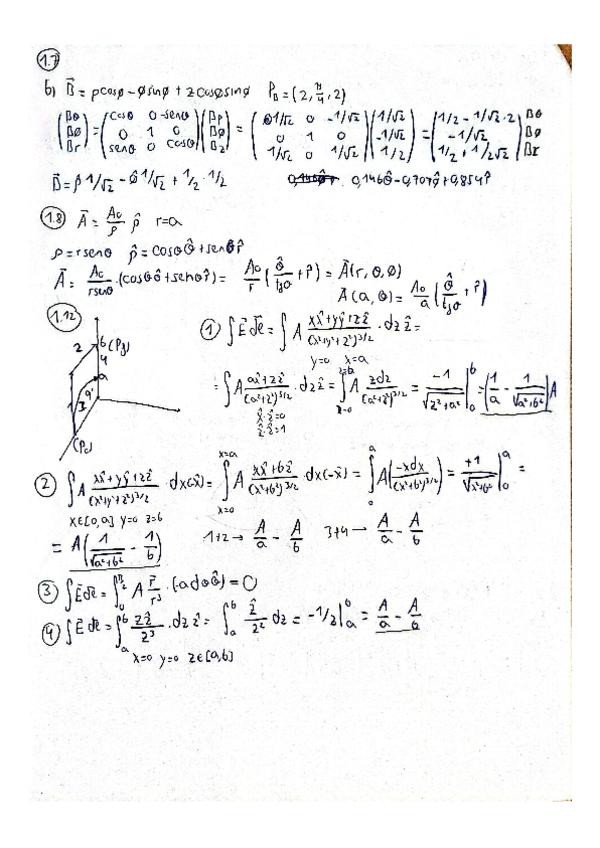 1.7
b) B⃗ = ρcosø - ø̂sinø + zcosøsinø P_B = (2, π/4, 2)
(Bθ Bø Br) = (cosθ 0 -senθ; 0 1 0; senθ 0 cosθ)(Bρ Bø Bz) = (1/√2 0 -1/√2; 0 1 0; 1/√2 0 1/√2)(1/√2; -1/√2; 1/2) = (1/2 - 1/√2·2; -1/√2; 1/2 + 1/2√2) Bθ Bø Br
B⃗ = ρ̂ 1/√2 - ø̂ 1/√2 + 1/2 · 1/2 0,146θ̂ - 0,707ø̂ + 0,854r̂
1.8 A⃗ = A₀/ρ ρ̂ r=a
ρ = rsenθ ρ̂ = cosθθ̂ + senθr̂
A⃗ = A₀/rsenθ · (cosθθ̂ + senθr̂) = A₀/r (θ̂/tgθ + r̂) = A⃗(r, θ, ø)
A⃗(a, θ) = A₀/a (θ̂/tgθ + r̂)
1.12
2 b (P₂) 4 a 1 3 (P₀)
① ∫E⃗dℓ⃗ = ∫A (xx̂+yŷ+zẑ)/(x²+y²+z²)^3/2 · dzẑ =
y=0 x=a
= ∫A (ax̂+zẑ)/(a²+z²)^3/2 · dzẑ = ∫A zdz/(a²+z²)^3/2 = -1/√(z²+a²) |₀ᵇ = (1/a - 1/√(a²+b²))A
x̂·ẑ=0
ẑ·ẑ=1
② ∫A (xx̂+yŷ+zẑ)/(x²+y²+z²)^3/2 · dx(-x̂) = ∫A (xx̂+bẑ)/(x²+b²)^3/2 · dx(-x̂) = ∫₀ᵃ A(-xdx/(x²+b²)^3/2) = +1/√(x²+b²) |₀ᵃ =
x∈[0,a] y=0 z=b x=0 x=a
= A(1/√(a²+b²) - 1/b) 1+2 → A/a - A/b 3+4 → A/a - A/b
③ ∫E⃗dℓ⃗ = ∫₀^π/2 A r⃗/r³ · (adθθ̂) = 0
④ ∫E⃗dℓ⃗ = ∫ₐᵇ zẑ/z³ · dzẑ = ∫ₐᵇ ẑ/z² dz = -1/z|ₐᵇ = A/a - A/b
x=0 y=0 z∈[a,b]